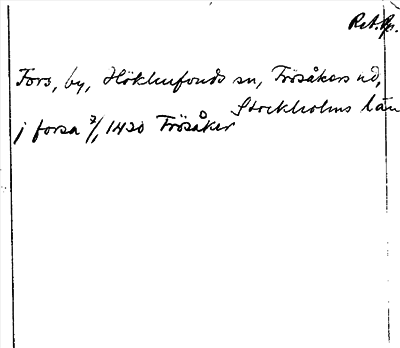 RA. Pp.
Fors, by, Hökhufvuds sn, Frösåkers hd,
Stockholms län
j forsa 7/1 1420 Frösåker